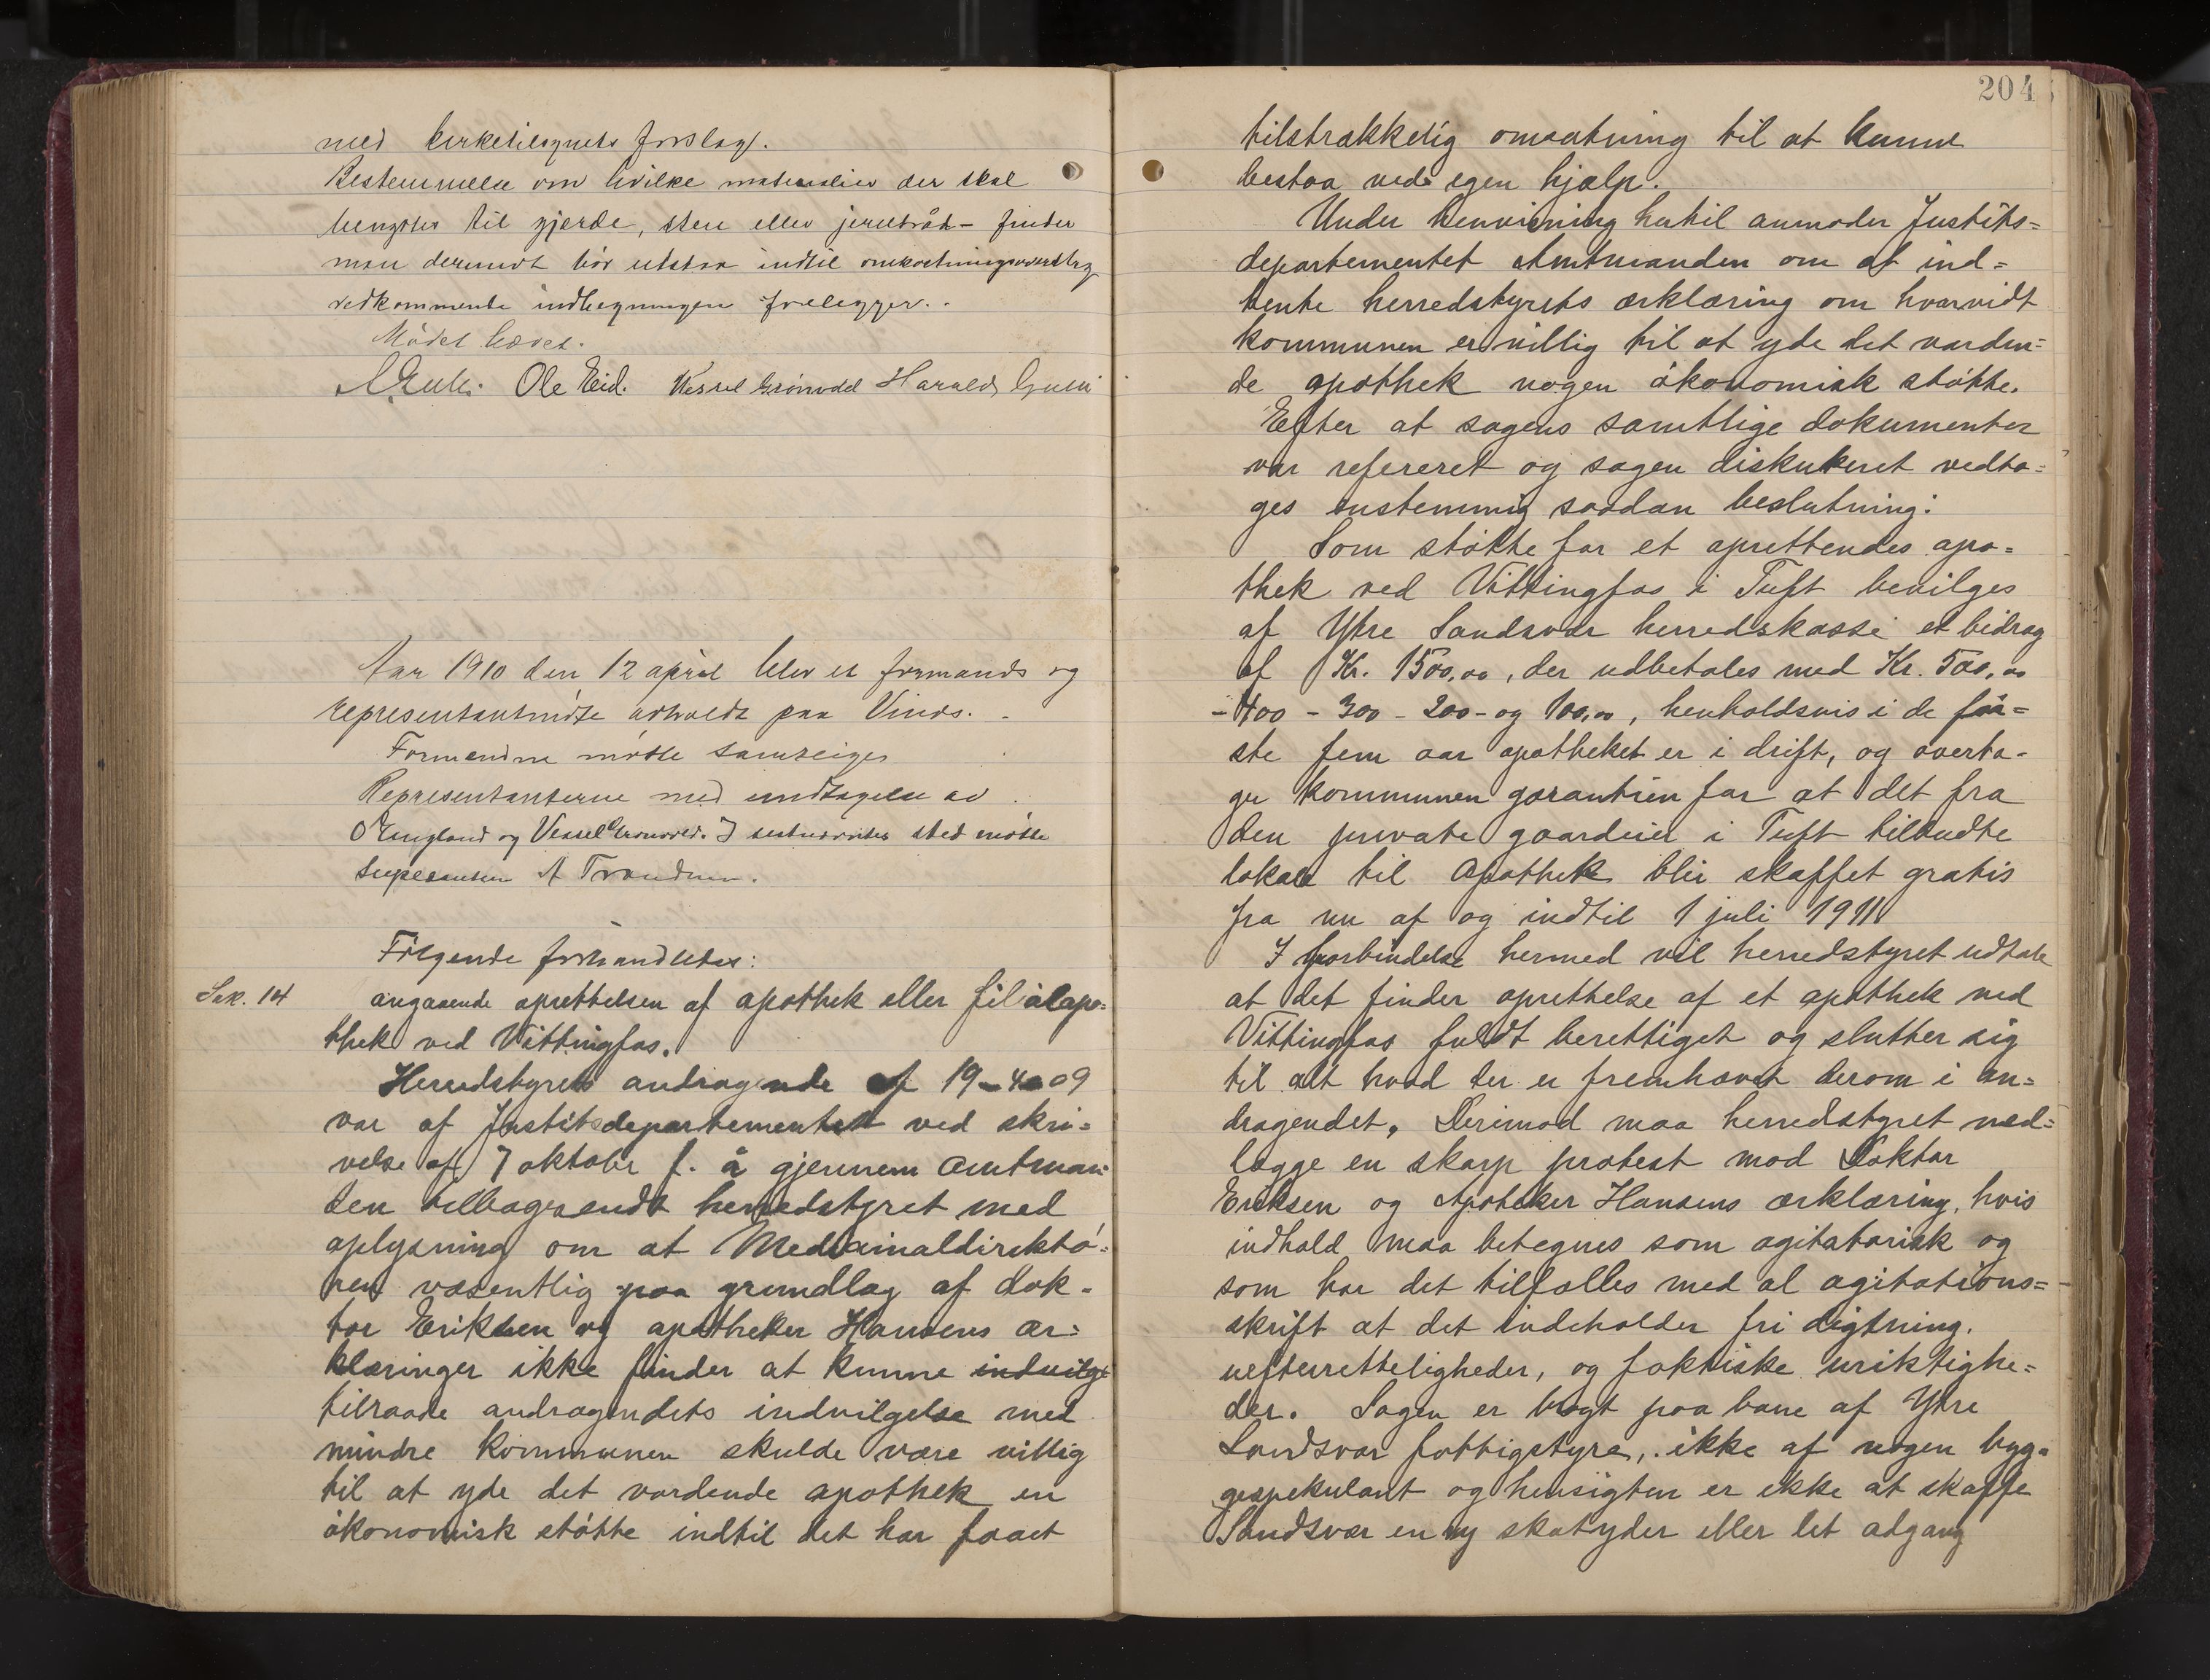 med kirketilsynets forslag.
Bestemmelse om hvilke materialier der skal
benyttes til gjerde, sten eller jerntråd – finder
man derimot bør utstaa indtil omkostningsoverslag
vedkommende indhegningen forelegges.
Mødet hævet.
Ole Eid. Vessel Grønvold Harald
Aar 1910 den 12 april blev et formands og
representantmøte avholdt paa Vinds.
Formændne møtte samtlige
Representanterne med undtagelse av
O England og Vessel Grønvold. I sistnævntes sted møtte
suppleanten A Trondsen.
Følgende forhandledes:
Sak. 14 angaaende oprettelsen af apothek eller filialapo-
thek ved Vittingfos.
Herredstyrets andragende af 19-4-09
var af Justitsdepartementet ved skri-
velse af 7 oktober f. å gjennem Amtman-
den tilbagesendt herredstyret med
oplysning om at Medicinaldirektø-
ren væsentlig paa grundlag af dok-
tor Eriksen og apotheker Hansens ær-
klæringer ikke finder at kunne indvilge
tilraade andragendets indvilgelse med
mindre kommunen skulde være villig
til at yde det vordende apothek en
økonomisk støtte indtil det har faaet
204
tilstrækkelig omsætning til at kunne
bestaa ved egen hjælp.
Under henvisning hertil anmoder Justits-
departementet Amtmanden om at ind-
hente herredstyrets ærklæring om hvorvidt
kommunen er villig til at yde det vorden-
de apothek nogen økonomisk støtte.
Efter at sagens samtlige dokumenter
var refereret og sagen diskuteret vedto-
ges enstemmig saadan beslutning:
Som støtte for et oprettendes apo-
thek ved Vittingfos i Tuft bevilges
af Ytre Sandsvær herredskasse et bidrag
af Kr. 1500,00, der udbetales med Kr. 500,00
- 400 - 300 - 200 - og 100,00, henholdsvis i de før-
ste fem aar apotheket er i drift, og overta-
ger kommunen garantien for at det fra
den private gaardeier i Tuft tilbudte
lokale til Apothek blir skaffet gratis
fra nu af og indtil 1 juli 1911
I forbindelse hermed vil herredstyret udtale
at det finder oprettelse af et apothek ved
Vittingfos fuldt berettiget og slutter sig
til alt hvad der er fremhævet derom i an-
dragendet. Derimod maa herredstyret ned-
lægge en skarp protest mod Doktor
Eriksen og Apotheker Hansens ærklæring, hvis
indhold maa betegnes som agitatorisk og
som har det tilfælles med al agitations-
skrift at det indeholder fri digtning.
uefterretteligheder, og faktiske uriktighe-
der. Sagen er bragt paa bane af Ytre
Sandsvær fattigstyre, ikke af nogen byg-
gespekulant og hensigten er ikke at skaffe
Sandsvær en ny skatyder eller let adgang